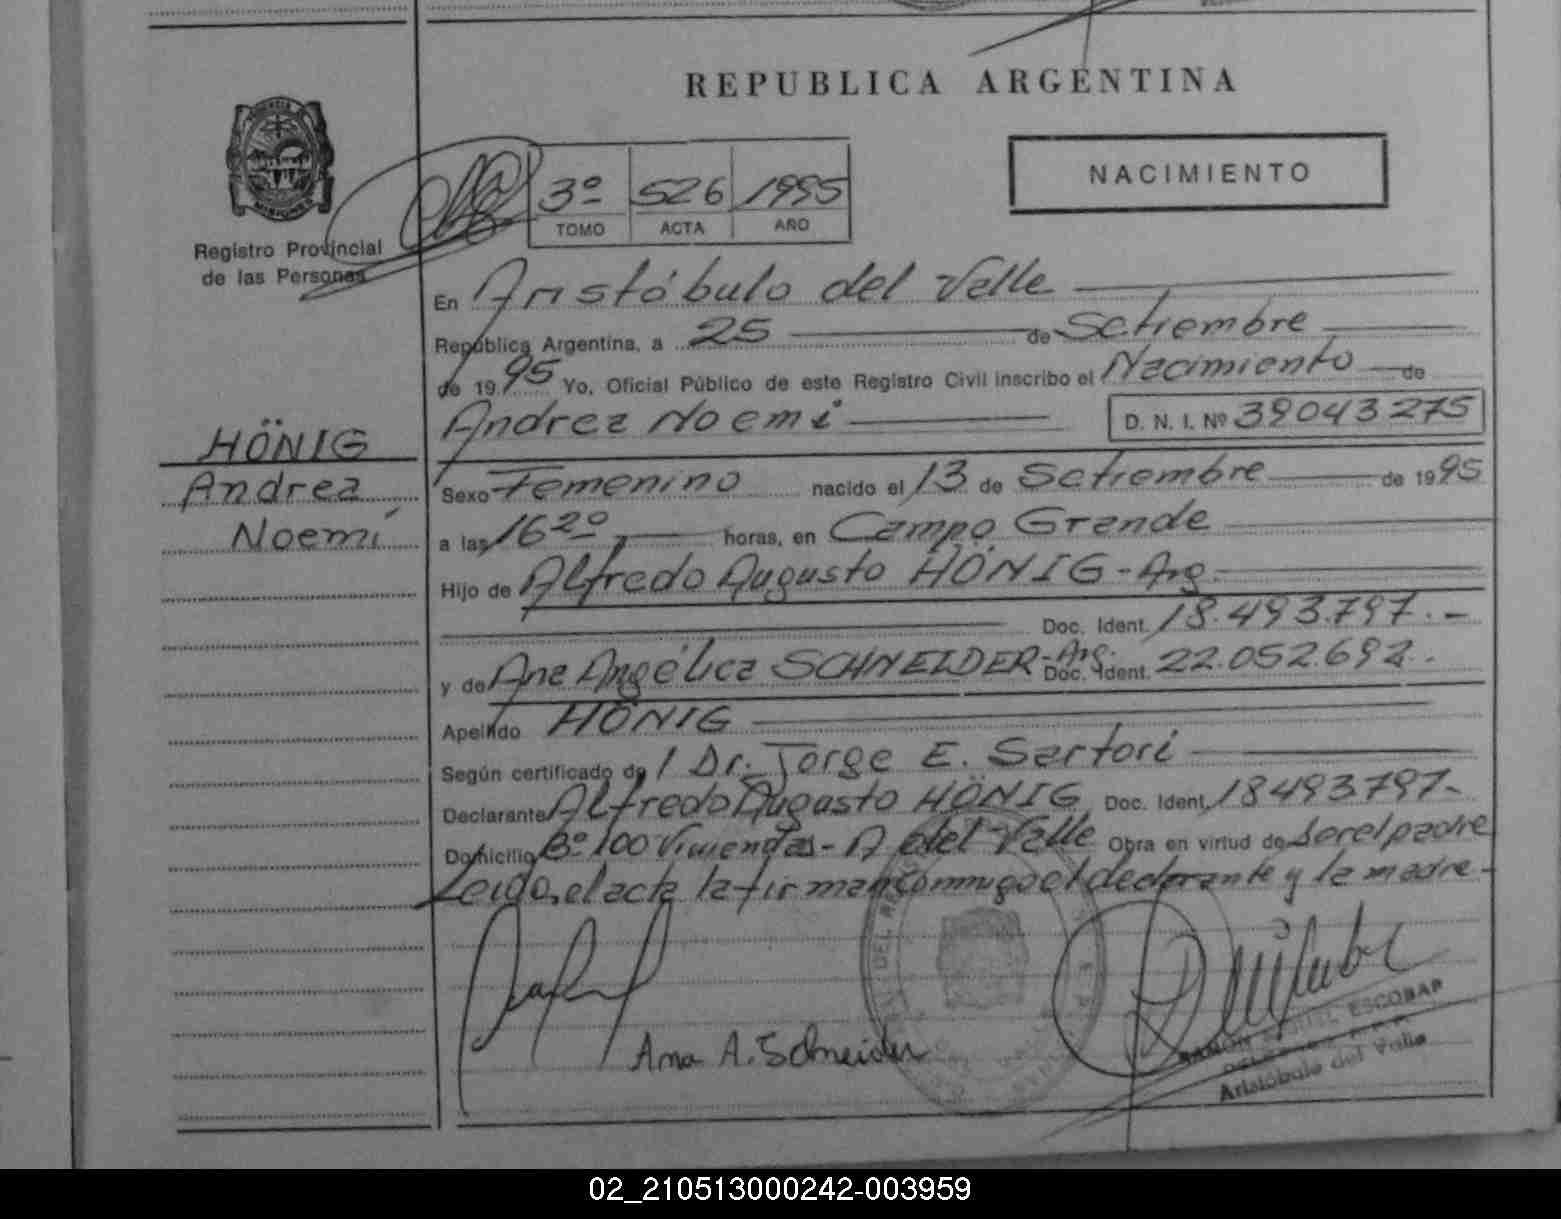 REPUBLICA ARGENTINA
NACIMIENTO
3º 526 1995
TOMO ACTA AÑO
MISIONES
Registro Provincial
de las Personas
En Aristóbulo del Valle
República Argentina, a 25 de Setiembre
de 1995 Yo, Oficial Público de este Registro Civil inscribo el Nacimiento de
Andrea Noemí D. N. I. Nº 39043275
HÖNIG
Andrea
Noemí
Sexo Femenino nacido el 13 de Setiembre de 1995
a las 16 20 horas, en Campo Grande
Hijo de Alfredo Augusto HÖNIG - Arg.
Doc. Ident. 18.493.797.-
y de Ana Angélica SCHNEIDER - Arg. Doc. Ident. 22.052.692.
Apellido HÖNIG
Según certificado de / Dr. Jorge E. Sartori
Declarante Alfredo Augusto HÖNIG Doc. Ident. 18493797-
Domicilio Bº 100 Viviendas - A del Valle Obra en virtud de ser el padre
Leída el acta la firman conmigo el declarante y la madre-
Ana A. Schneider
RAMON MIGUEL ESCOBAR
Aristóbulo del Valle
02_210513000242-003959